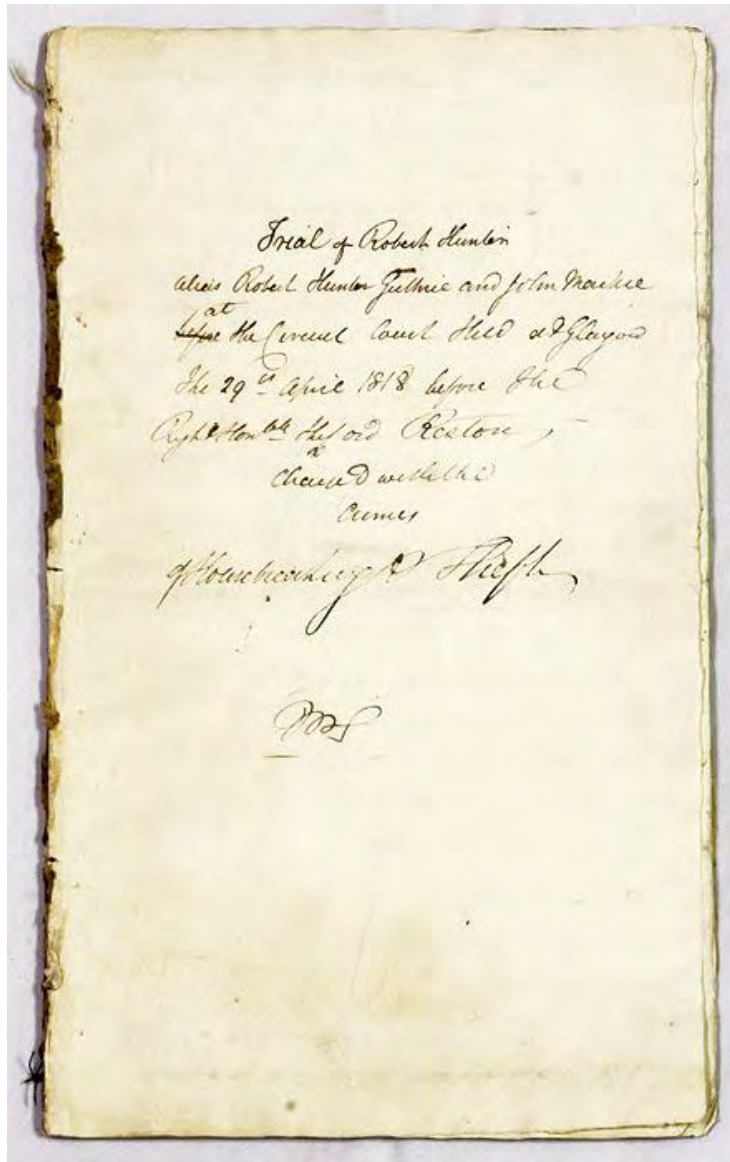 Trial of Robert Hunter
alias Robert Hunter Guthrie and John Mackie
at
before the Circuit Court Held at Glasgow
The 29th April 1818 before the
Right Honble the Lord Reston
charged with the
crimes
of Housebreaking & Theft